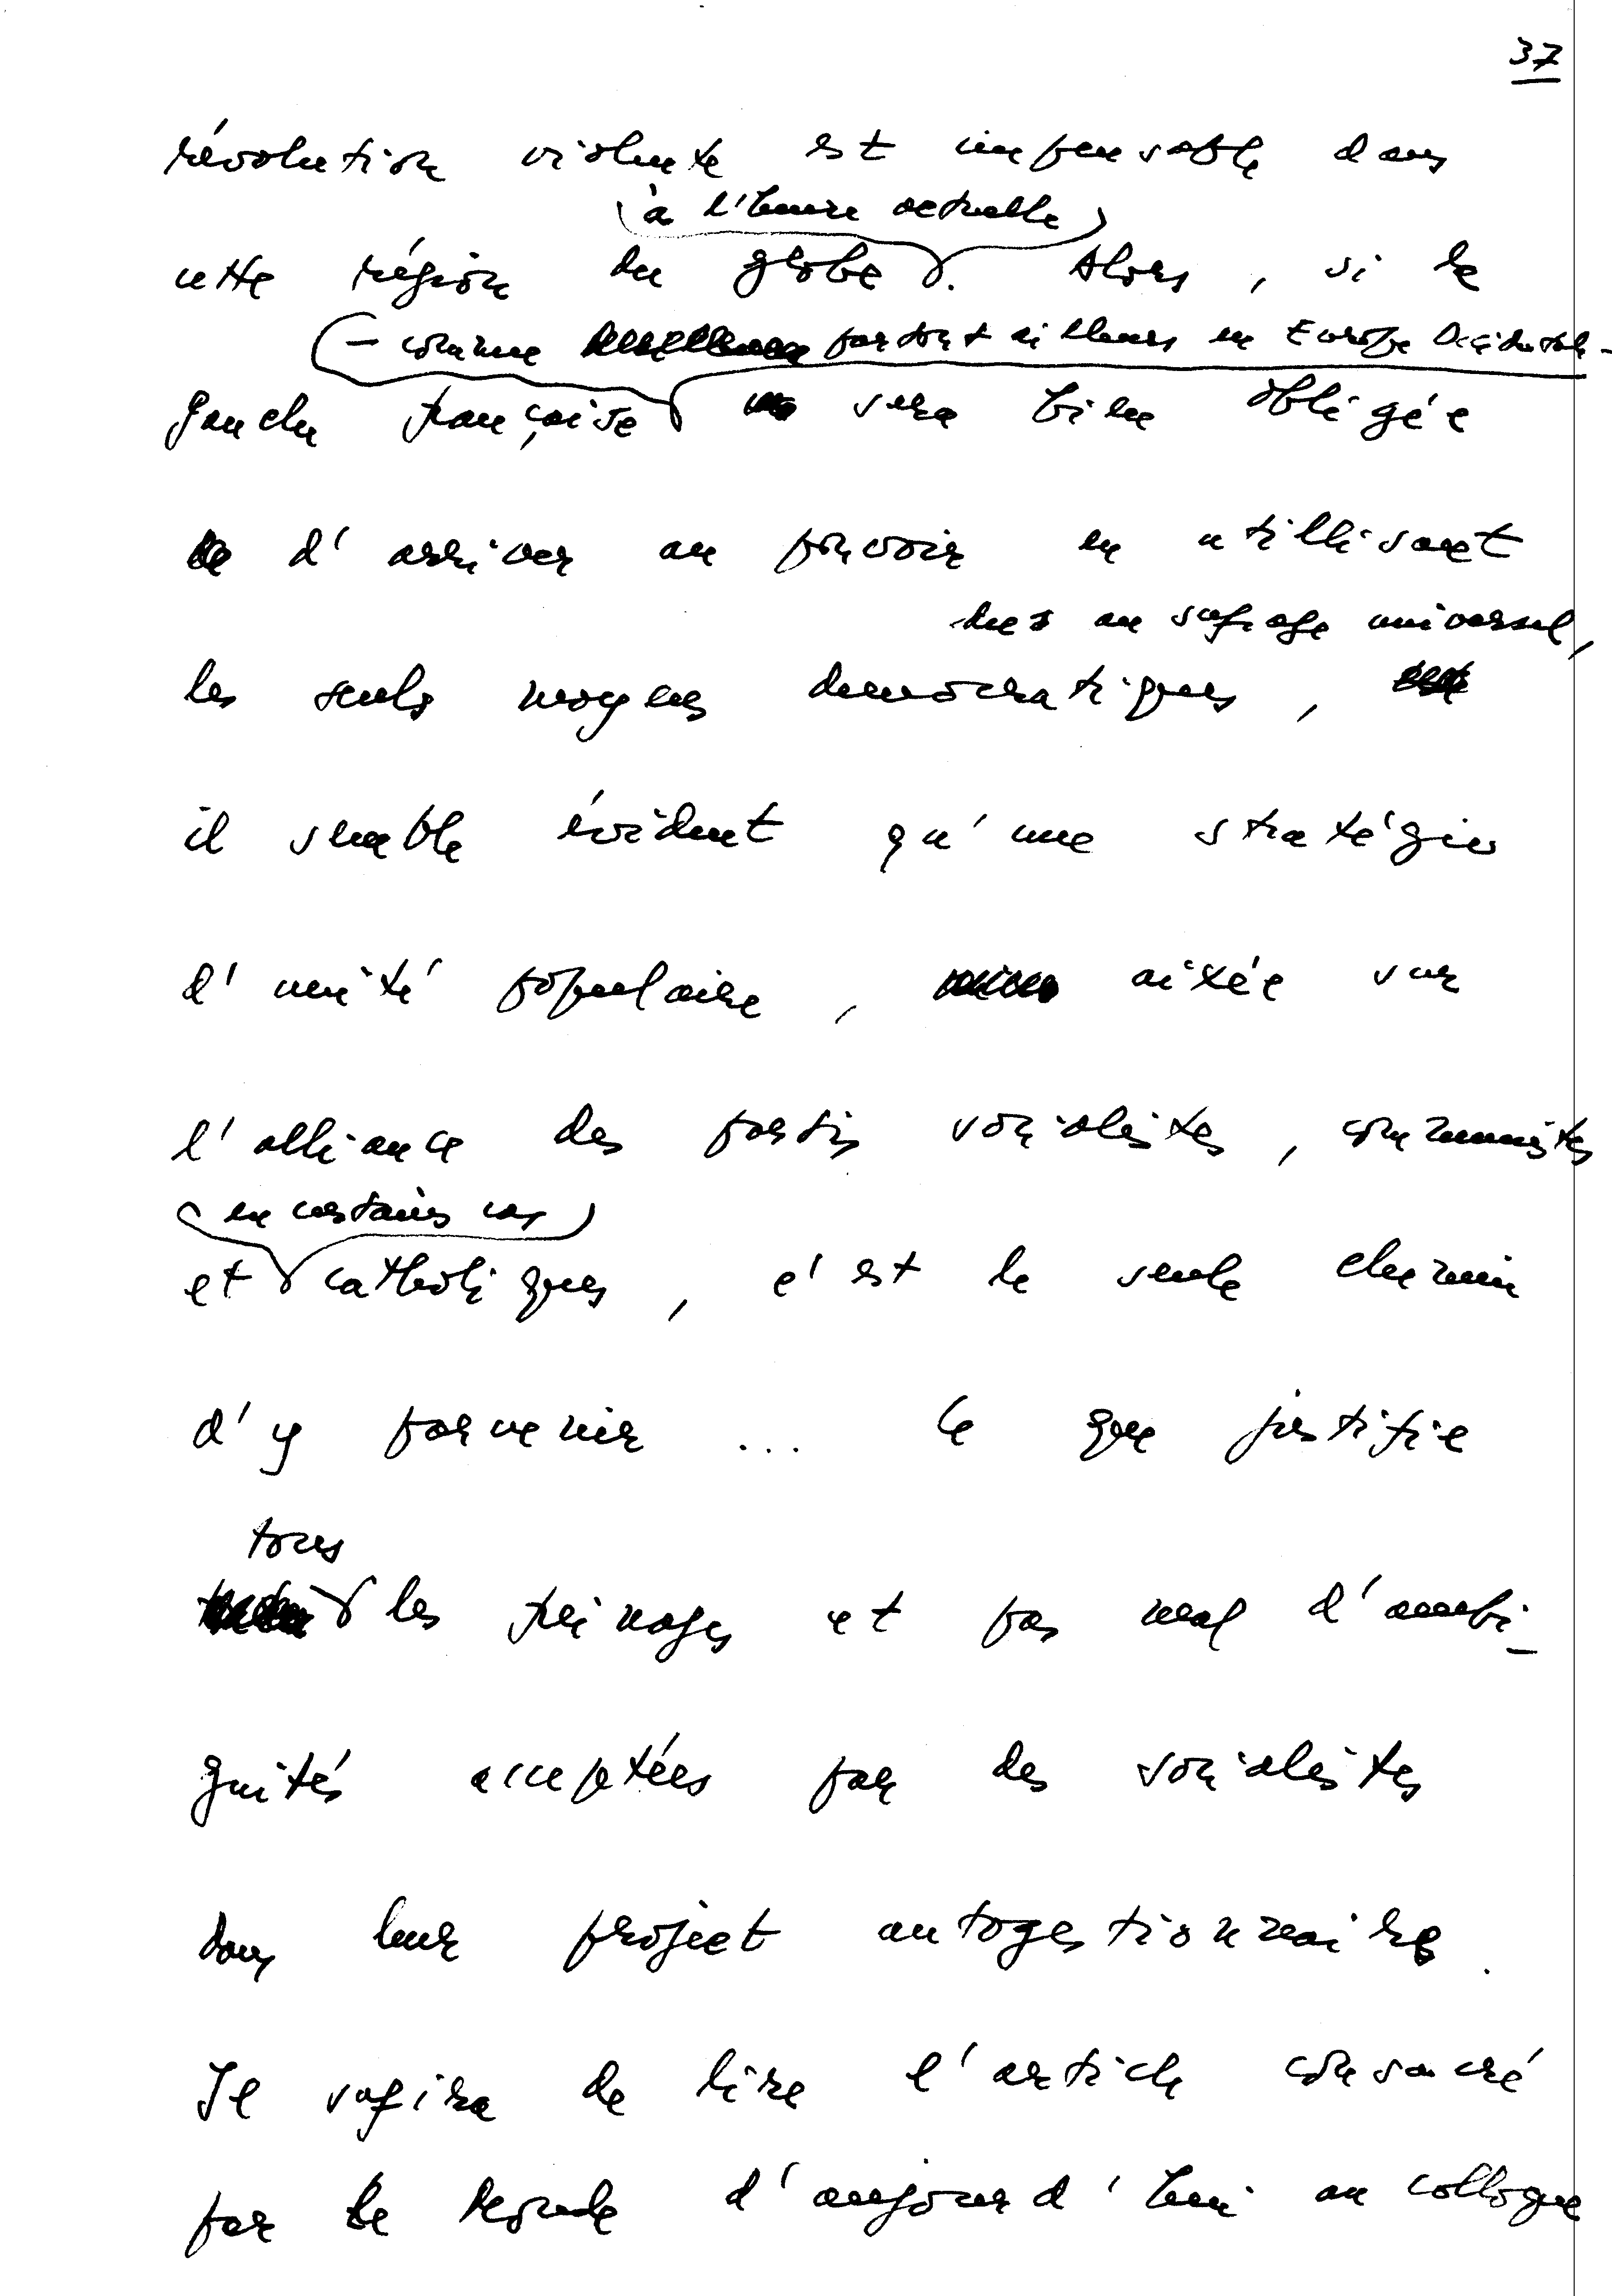 37
révolution violente est impensable dans
à l'heure actuelle
cette région du globe. Alors, si la
- comme partout ailleurs en Europe Occidentale -
gauche française sera bien obligée
d'arriver au pouvoir en utillisant
dues au sufrage universel,
les seuls moyens democratiques,
il semble évident qu'une stratégie
d'unité populaire, axée sur
l'alliance des partis socialistes, communistes
en certains cas
et catholiques, c'est le seule chemin
d'y parvenir ... Ce que justifie
tous
les freinages et pas mal d'ambi-
guités acceptées par des socialistes
dans leur project autogestionnaire.
Il sufira de lire l'article consacré
par Le Monde d'aujourd'hui au colloque